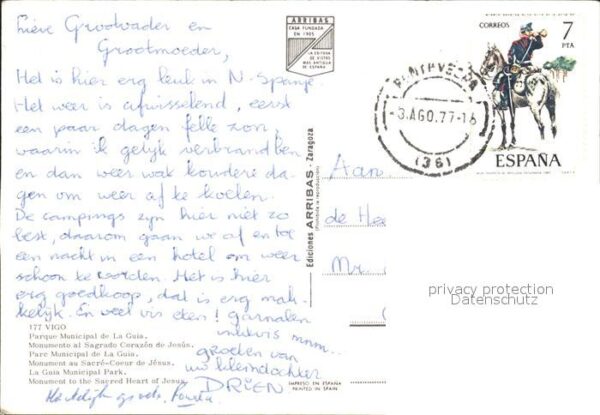 Lieve Grootvader en
Grootmoeder,
Het is hier erg leuk in N-Spanje.
Het weer is afwisselend, eerst
een paar dagen felle zon,
waarin ik gelijk verbrandben
en dan weer wak koudere da-
gen om weer af te koelen.
De campings zijn hier niet zo
best, daarom gaan we af en toe
een nacht in een hotel om weer
schoon te worden. Het is hier
erg goedkoop, dat is erg mak-
kelijk. En veel vis eten! garnalen
inktvis mmm..
groeten van
uw kleindochter
DRIEN
Hartelijk
177 VIGO
Parque Municipal de La Guia.
Monumento al Sagrado Corazón de Jesús.
Parc Municipal de La Guia.
Monument au Sacré-Coeur de Jésus.
La Guia Municipal Park.
Monument to the Sacred Heart of Jesus.
ARRIBAS
CASA FUNDADA
EN 1905
LA EDITORA
DE VISTAS
MAS ANTIGUA
DE ESPAÑA
Ediciones ARRIBAS - Zaragoza
(Prohibida la reproducción)
IMPRESO EN ESPAÑA
PRINTED IN SPAIN
CORREOS
7
PTA
ESPAÑA
PONTEVEDRA
-3.AGO.77-16
(36)
Aan
de Hee
Mr
privacy protection
Datenschutz